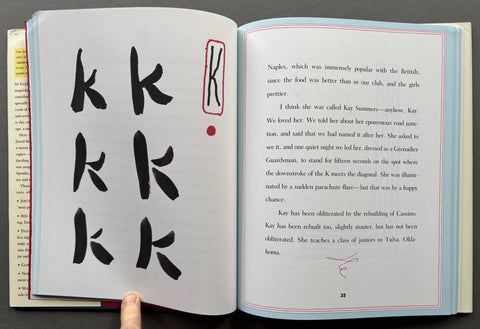 k k
k k
k k
K
Naples, which was immensely popular with the British,
since the food was better than in our club, and the girls
prettier.
I think she was called Kay Summers—anyhow, Kay.
We loved her. We told her about her eponymous road junc-
tion, and said that we had named it after her. She asked to
see it, and one quiet night we led her, dressed as a Grenadier
Guardsman, to stand for fifteen seconds on the spot where
the downstroke of the K meets the diagonal. She was illumi-
nated by a sudden parachute flare—but that was by a happy
chance.
Kay has been obliterated by the rebuilding of Cassino.
Kay has been rebuilt too, slightly stouter, but has not been
obliterated. She teaches a class of juniors in Tulsa, Okla-
homa.
35